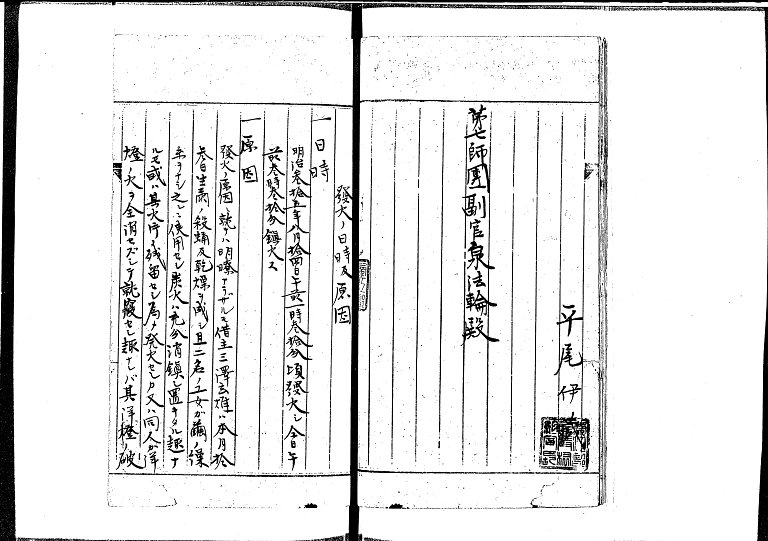 平尾伊
第七師團副官泉法輪殿
發火ノ日時及原因
一日時
明治参拾五年八月拾四日午前一時参拾分頃發火シ仝日午
前参時参拾分鎮火ス
一原因
發火ノ原因ニ就テハ明瞭ナラザルモ借主三澤玄雄ハ本月拾
参日生繭ノ殺蛹及乾燥ヲ為シ且二名ノ工女ガ繭ノ操
糸ヲナシ之ニ使用セシ炭火ハ充分消鎮シ置キタル趣ナ
ルモ或ハ其火ノ残留セシ為メ発火セシカ又ハ同人ガ洋
燈ノ火ヲ全消セズシテ就寝セシ趣ナレバ其洋橙ノ破